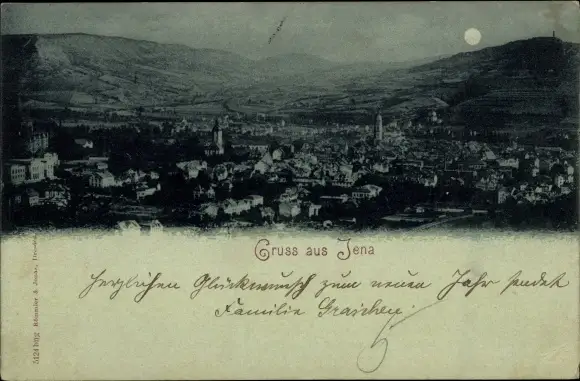 Gruss aus Jena
Herzlichen Glückwunsch zum neuen Jahr sendet
Familie
5124 bfg Römmler & Jonas, Dresden